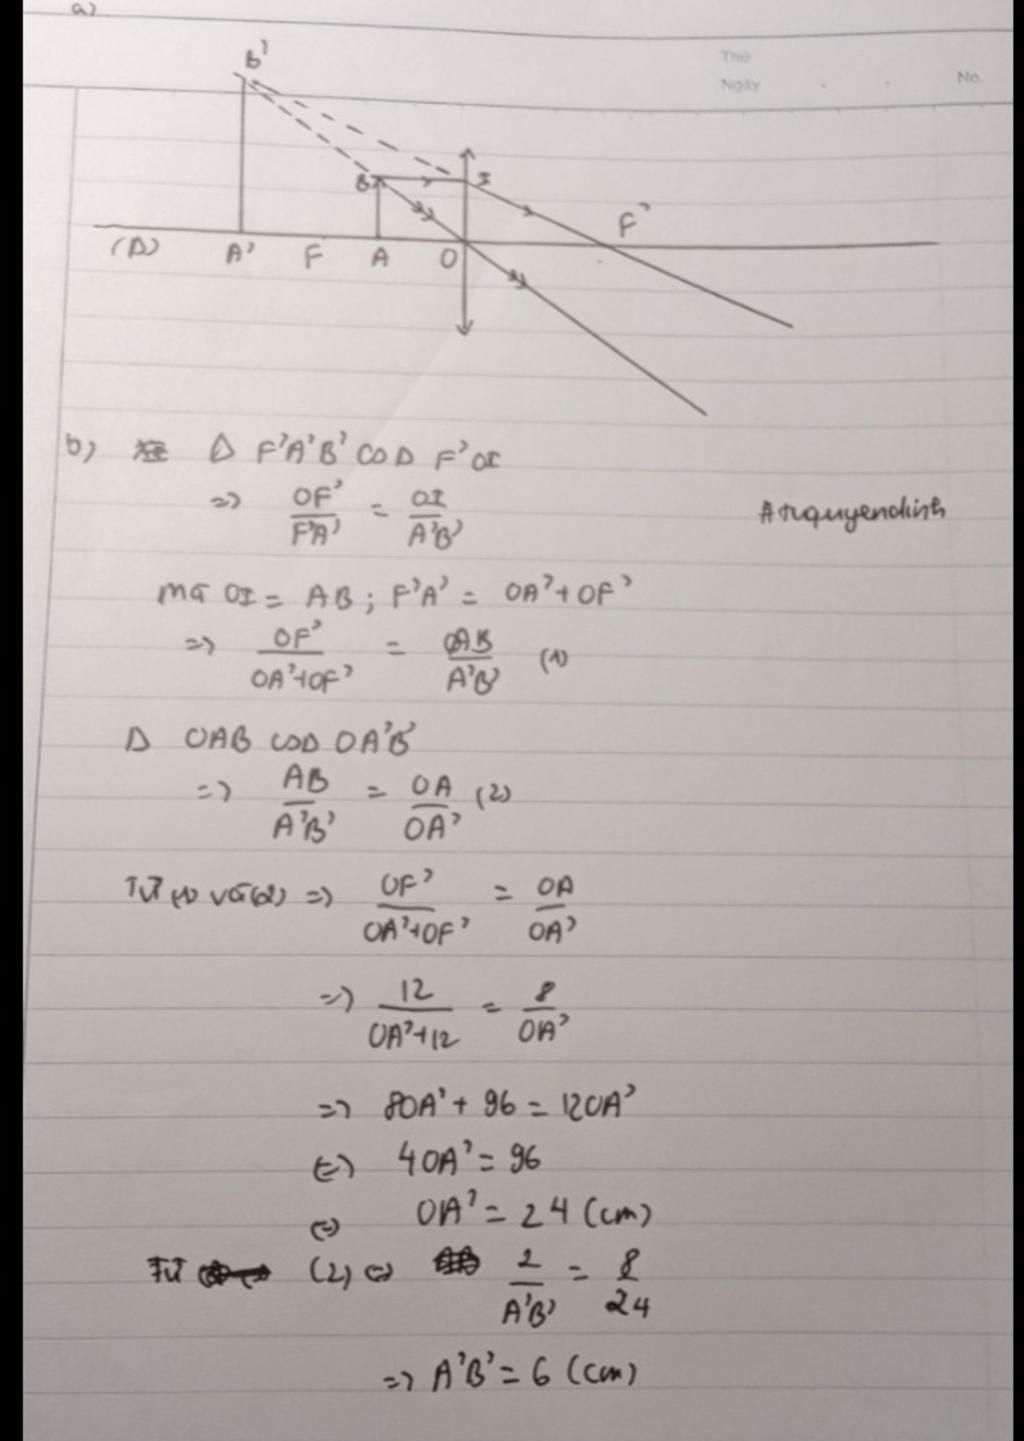 a)
Thứ
Ngày . . No.
B'
B I F'
(Δ) A' F A O
b) Δ F'A'B' COD F'OI
=> OF'/F'A' = OI/A'B'
Anquyendinh
mà OI = AB ; F'A' = OA' + OF'
=> OF'/OA'+OF' = AB/A'B' (1)
Δ OAB COD OA'B'
=> AB/A'B' = OA/OA' (2)
Từ (1) và (2) => OF'/OA'+OF' = OA/OA'
=> 12/OA'+12 = 8/OA'
=> 8OA' + 96 = 12OA'
(=) 4OA' = 96
(=) OA' = 24 (cm)
Từ (2) (=) 2/A'B' = 8/24
=> A'B' = 6 (cm)